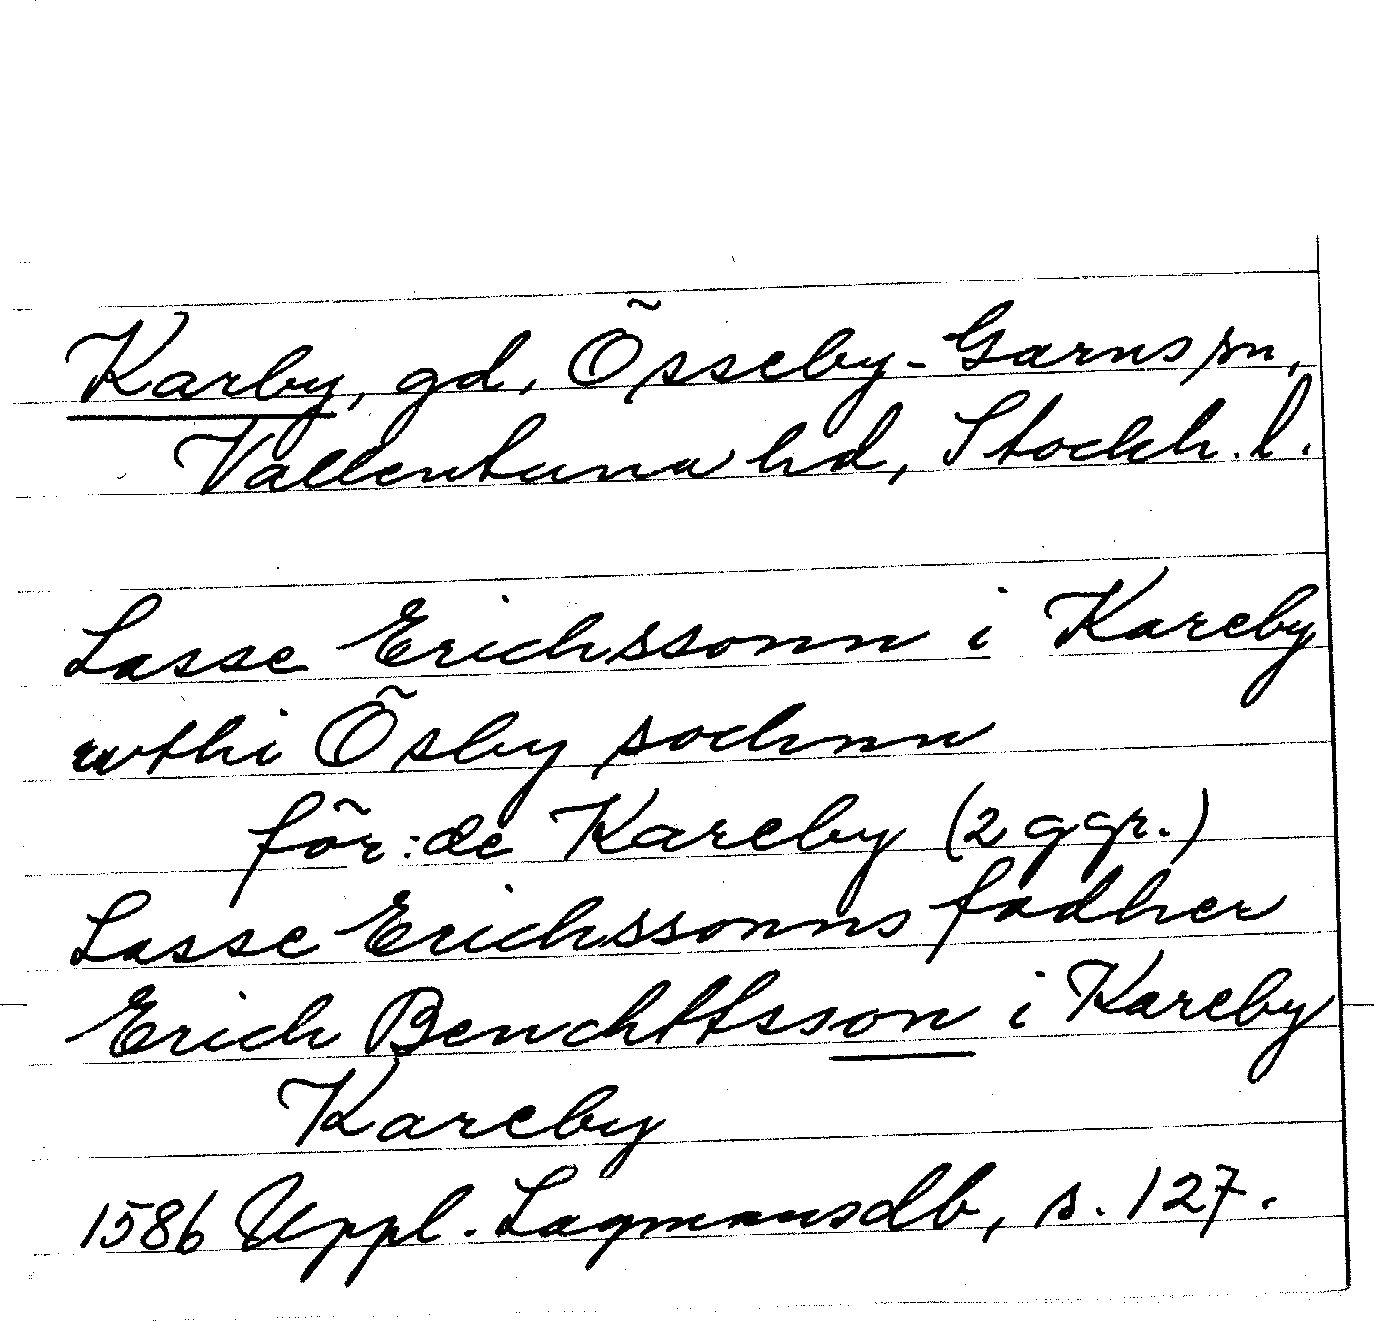 Karby, gd, Össeby-Garns sn,
Vallentuna hd, Stockh. l.
Lasse Erichssonn i Kareby
wthi Ösby sochnn
för: de Kareby (2 ggr.)
Lasse Erichssonns fadher
Erich Benchttsson i Kareby
Kareby
1586 Uppl. Lagmansdb, s. 127.